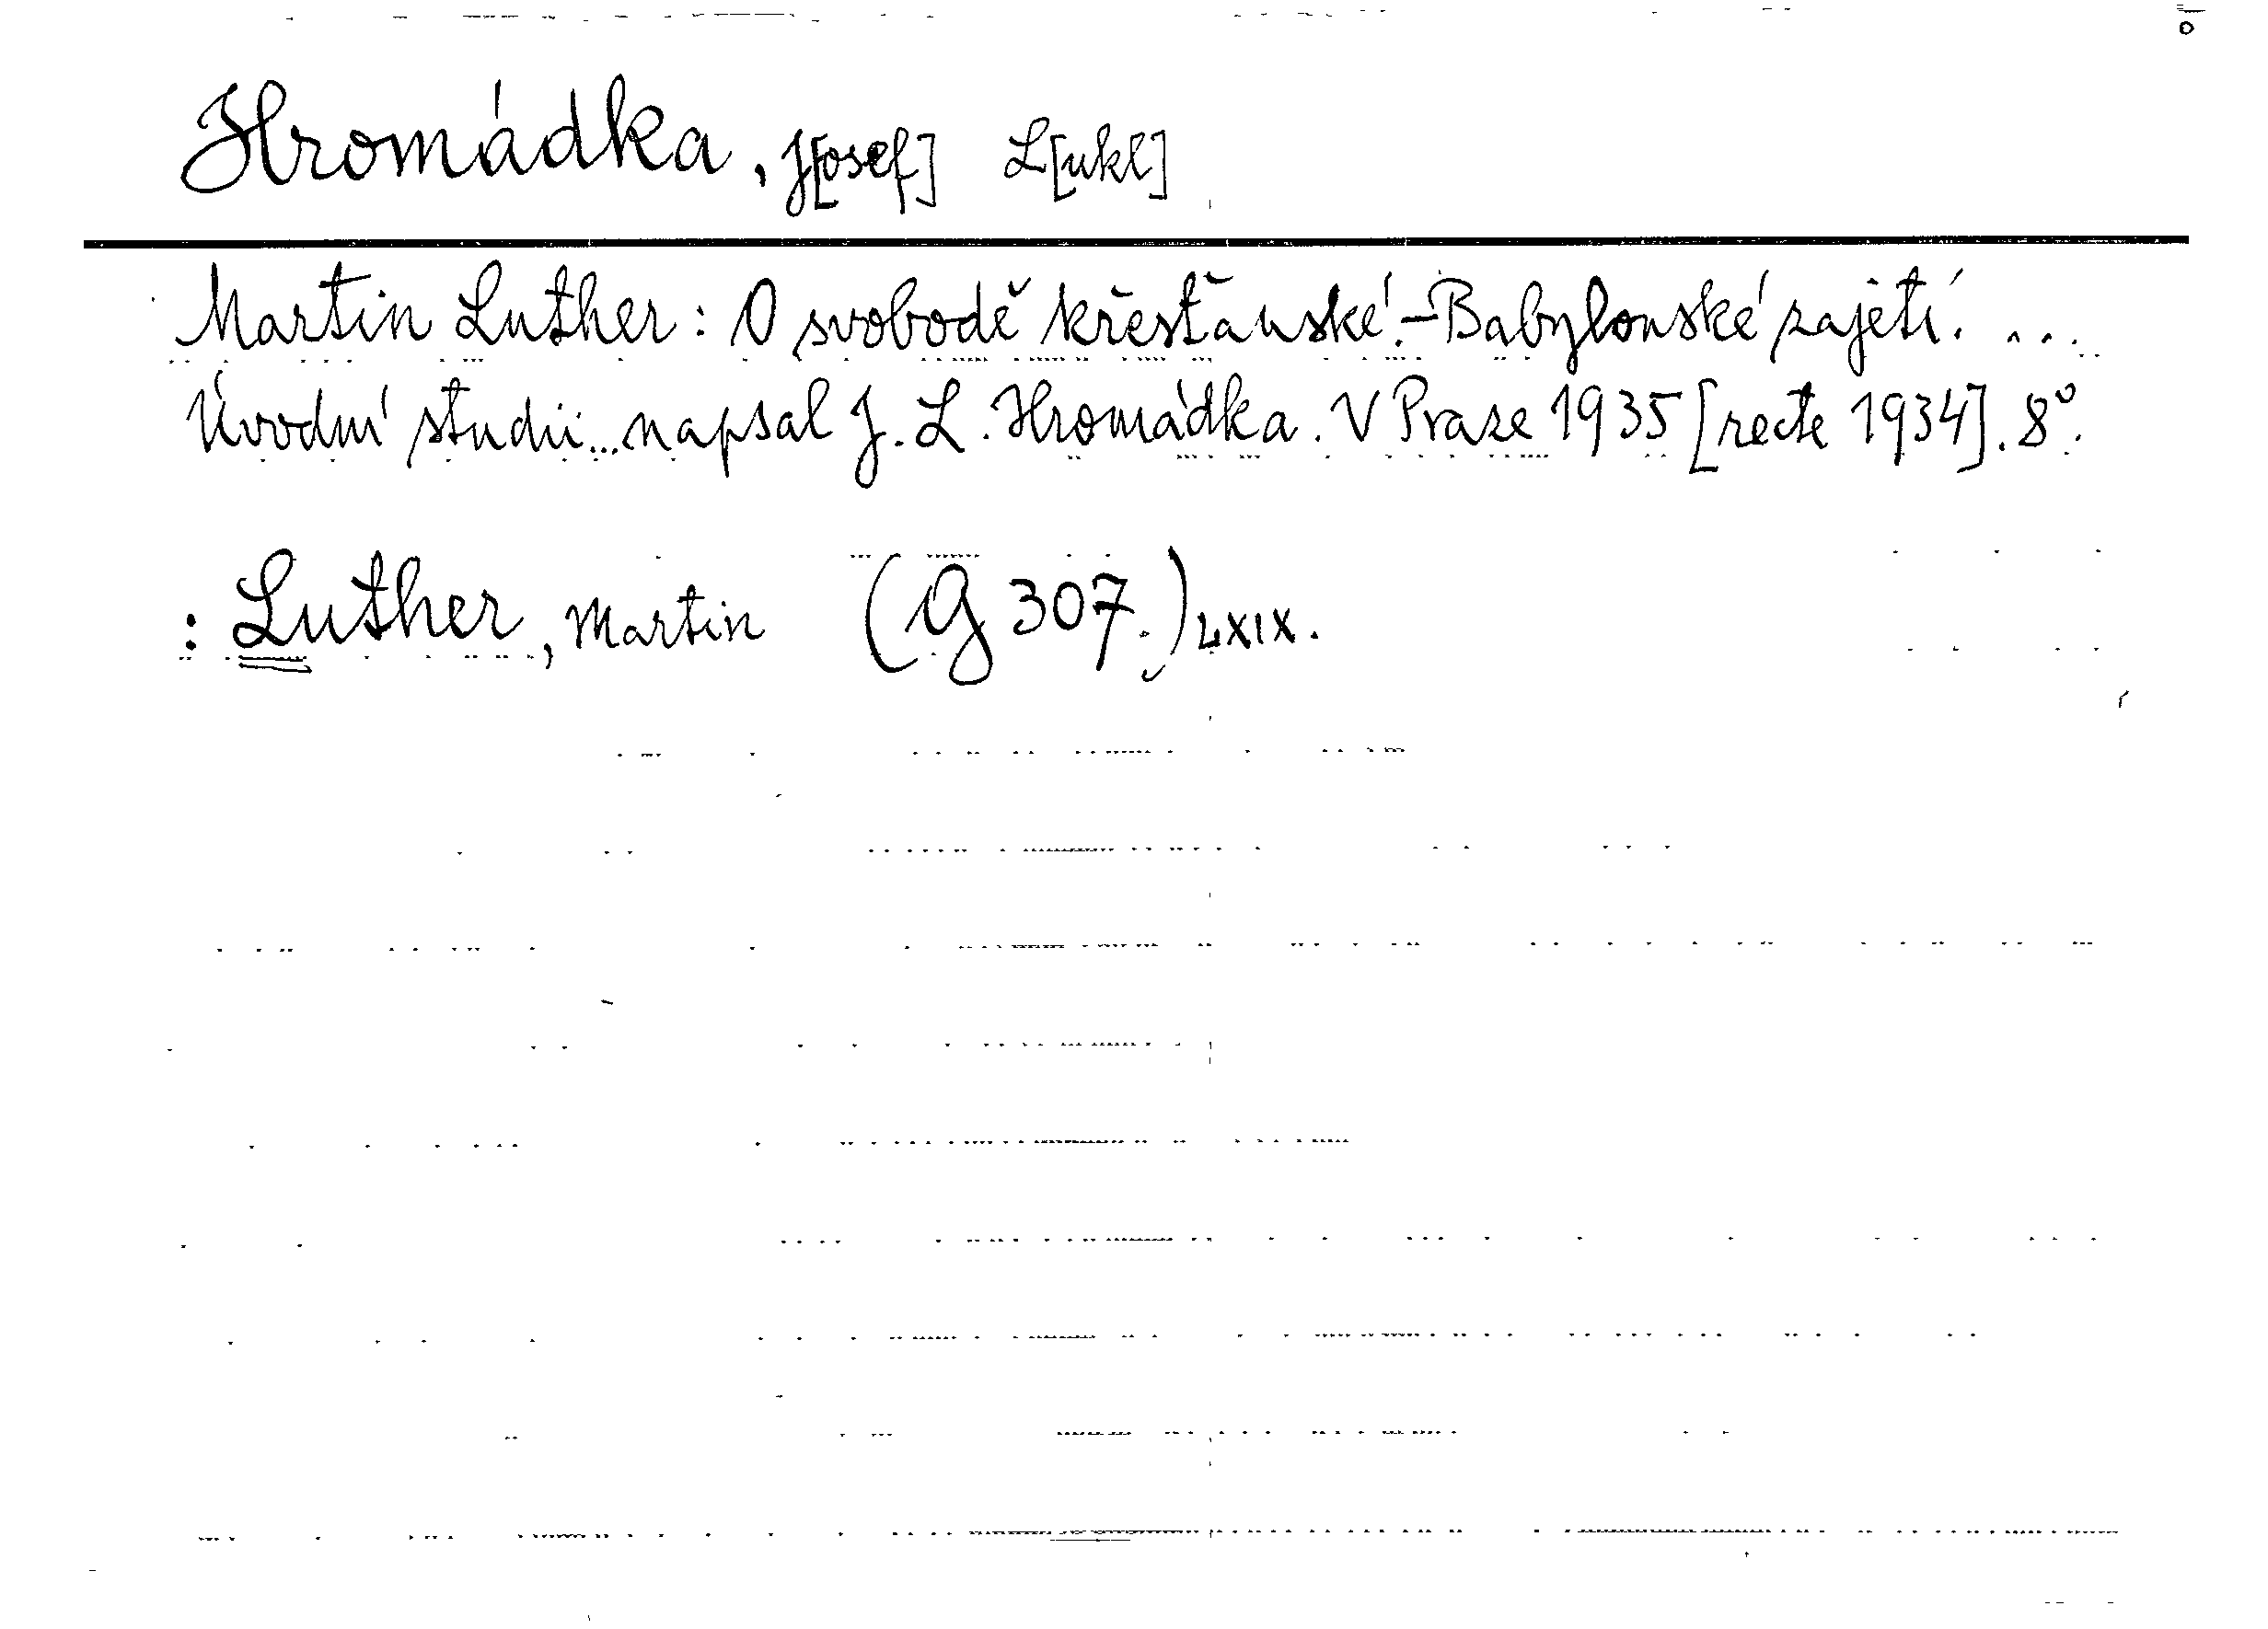 Hromádka, J[osef] L[ukl]
Martin Luther: O svobodě křesťanské. - Babylonské zajetí. ...
Úvodní studii... napsal J. L. Hromádka. V Praze 1935 [recte 1934]. 8°.
: Luther, Martin (G 307.) LXIX.